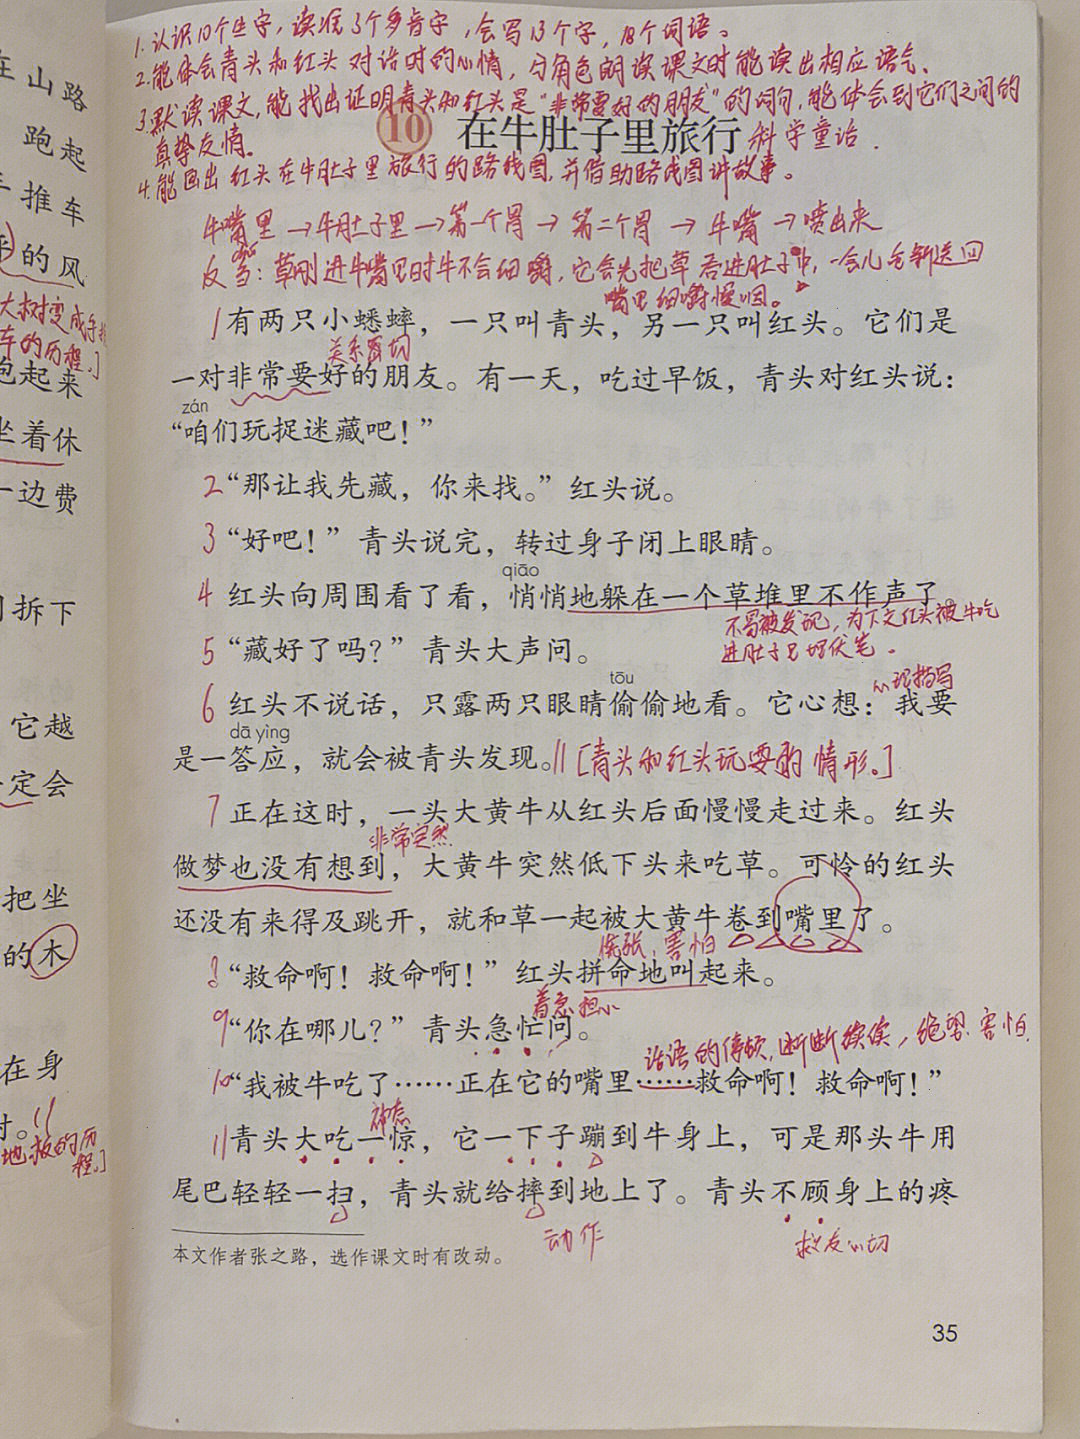 在山路
跑起
推车
的风
大树变成手推
车的历程。]
跑起来
坐着休
一边费
拆下
它越
定会
把坐
的木
在身
时。
地救的历
程。]
1.认识10个生字,读准3个多音字,会写13个字,18个词语。
2.能体会青头和红头对话时的心情,分角色朗读课文时能读出相应语气、
3.默读课文,能找出证明青头和红头是“非常要好的朋友”的词句,能体会到它们之间的
真挚友情。
10 在牛肚子里旅行 科学童话.
4.能画出红头在牛肚子里旅行的路线图,并借助路线图讲故事。
牛嘴里→牛肚子里→第一个胃→第二个胃→牛嘴→喷出来
反刍:草刚进牛嘴里时牛不会细嚼,它会先把草吞进肚子中,一会儿重新送回
嘴里细嚼慢咽。
1有两只小蟋蟀,一只叫青头,另一只叫红头。它们是
关系密切
一对非常要好的朋友。有一天,吃过早饭,青头对红头说:
zán
“咱们玩捉迷藏吧!”
2“那让我先藏,你来找。”红头说。
3“好吧!”青头说完,转过身子闭上眼睛。
qiāo
4 红头向周围看了看,悄悄地躲在一个草堆里不作声了。
不易被发现,为下文红头被牛吃
5“藏好了吗?”青头大声问。
进肚子里埋伏笔。
tōu
心理描写
6 红头不说话,只露两只眼睛偷偷地看。它心想:我要
dā yìng
是一答应,就会被青头发现。||[青头和红头玩耍的情形。]
7 正在这时,一头大黄牛从红头后面慢慢走过来。红头
非常突然
做梦也没有想到,大黄牛突然低下头来吃草。可怜的红头
还没有来得及跳开,就和草一起被大黄牛卷到嘴里了。
慌张、害怕
8“救命啊!救命啊!”红头拼命地叫起来。
着急担心
9“你在哪儿?”青头急忙问。
话语的停顿,断断续续,绝望 害怕.
10“我被牛吃了……正在它的嘴里……救命啊!救命啊!”
神态
11青头大吃一惊,它一下子蹦到牛身上,可是那头牛用
尾巴轻轻一扫,青头就给摔到地上了。青头不顾身上的疼
动作
救友心切
本文作者张之路,选作课文时有改动。
35